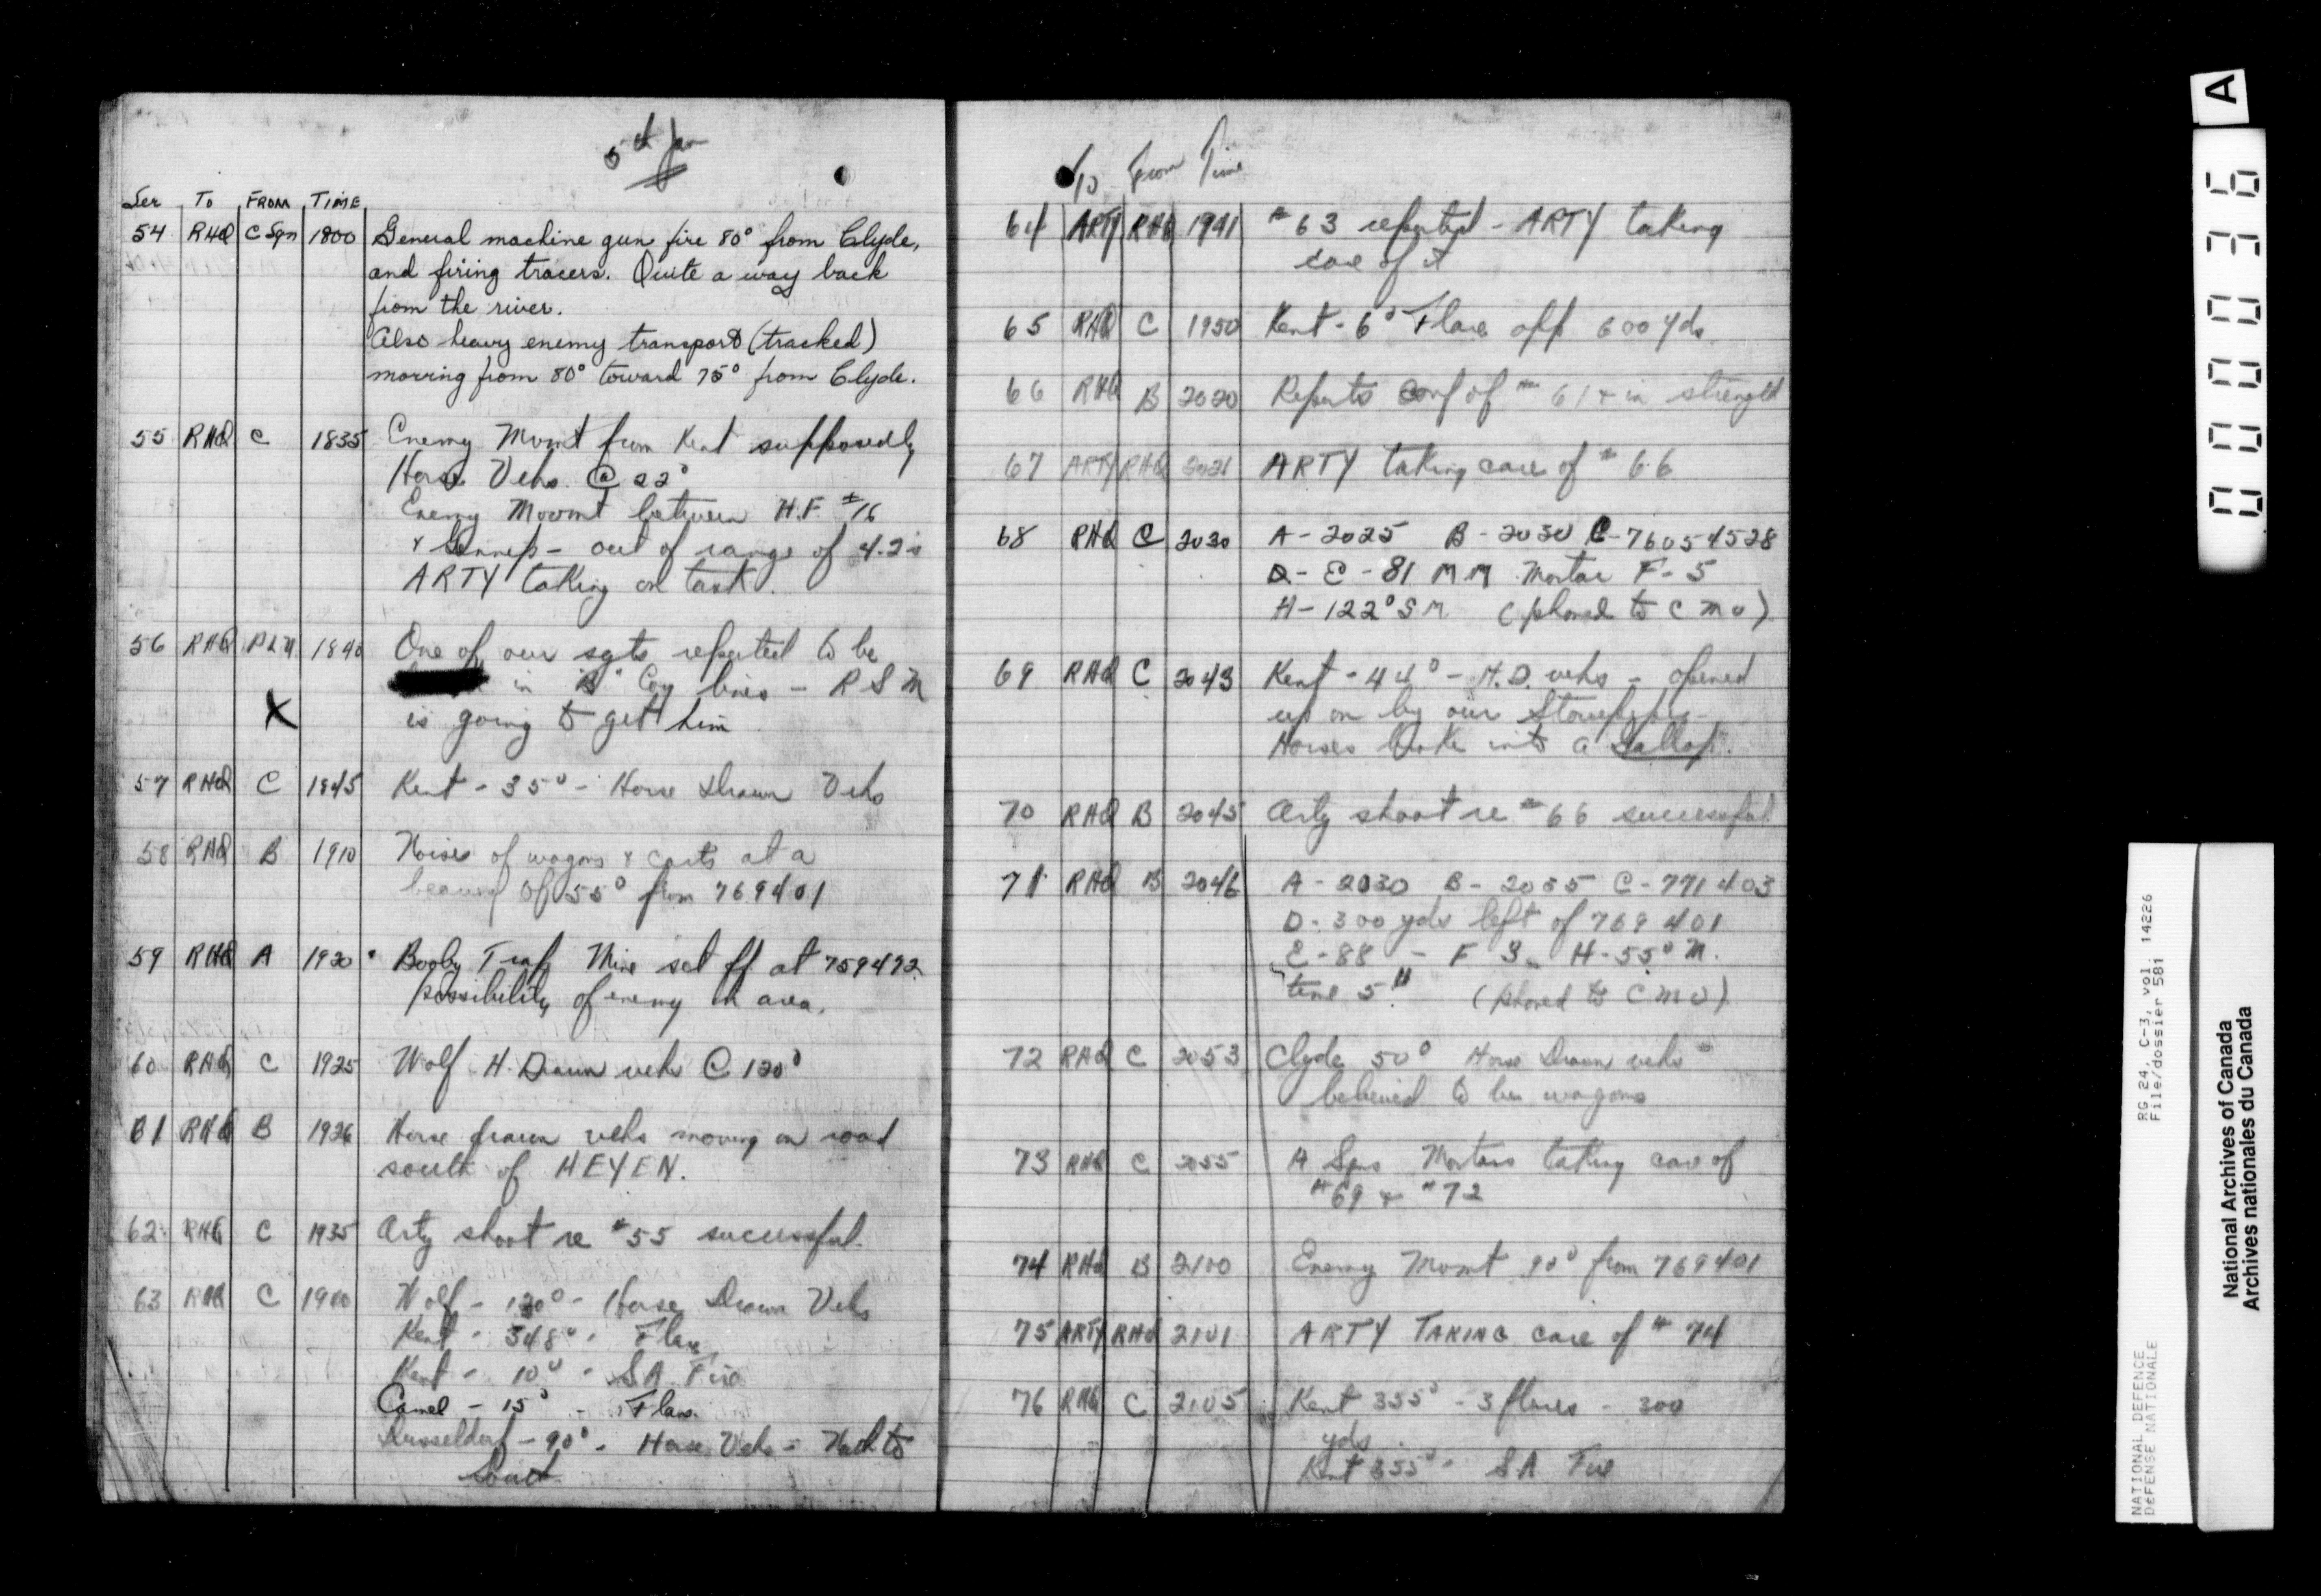 5th Jan
Ser To FROM TIME
54 RHQ C Sqn 1800 General machine gun fire 80° from Clyde,
and firing tracers. Quite a way back
from the river.
Also heavy enemy transport (tracked)
moving from 80° toward 75° from Clyde.
55 RHQ C 1835 Enemy Mvmt from Kent supposedly
Horse Vehs. @ 22°
Enemy Movmt between H.F. #16
& Gennep - out of range of 4.2's
ARTY taking on task.
56 RHQ 1840 One of our sgts reported to be
in "B" Coy lines - RSM
X is going to get him
57 RHQ C 1845 Kent - 35° - Horse Drawn Vehs
58 RHQ B 1910 Noises of wagons & carts at a
bearing of 55° from 769401
59 RHQ A 1920 Booby Trap Mine set off at 759472.
possibility of enemy in area.
60 RHQ C 1925 Wolf H. Drawn vehs @ 120°
61 RHQ B 1926 Horse drawn vehs moving on road
south of HEYEN.
62 RHQ C 1935 Arty shoot re #55 successful.
63 RHQ C 1940 Wolf - 120° - Horse Drawn Vehs
Kent - 348° - Flare
Kent - 10° - SA Fire
Camel - 15° - Flare
Dusseldorf - 90° - Horse Vehs - North to
South
To From Time
64 ARTY RHQ 1941 #63 reported - ARTY taking
care of it
65 RHQ C 1950 Kent - 6° Flare app 600 yds.
66 RHQ B 2020 Reports conf of #61 & in strength
67 ARTY RHQ 2021 ARTY taking care of #66
68 RHQ C 2030 A-2025 B-2030 C-76054528
D- E-81 MM Mortar F-5
H-122° SM (phoned to CMO)
69 RHQ C 2043 Kent - 44° - H.D. vehs - opened
up on by our
Horses broke into a Gallop.
70 RHQ B 2045 Arty shoot re #66 successful
71 RHQ B 2046 A-2030 B-2035 C-771403
D-300 yds left of 769401
E-88 - F 3 H-55° M.
time 5" (phoned to CMO)
72 RHQ C 2053 Clyde 50° Horse Drawn vehs
believed to be wagons
73 RHQ C 2055 H Sqns Mortars taking care of
#69 & #72
74 RHQ B 2100 Enemy Mvmt 90° from 769401
75 ARTY RHQ 2101 ARTY TAKING care of #74
76 RHQ C 2105 Kent 355° - 3 flares - 300
yds
Kent 355° - SA Fire
A
000036
RG 24, C-3, vol. 14226
File/dossier 581
NATIONAL DEFENCE
DÉFENSE NATIONALE
National Archives of Canada
Archives nationales du Canada